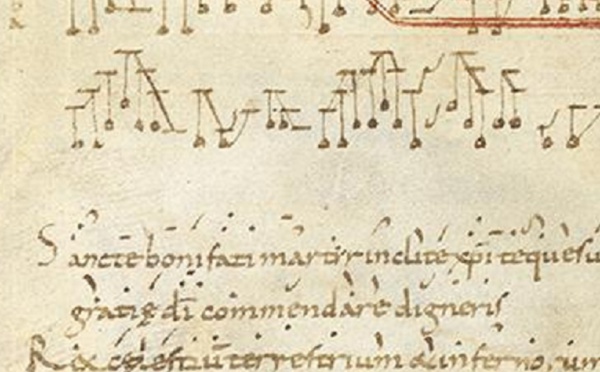 Sancte bonifati martir inclite xp̄i te quesu
gratię dī commendare digneris
Rex cęlestiū terrestrium & infernorum